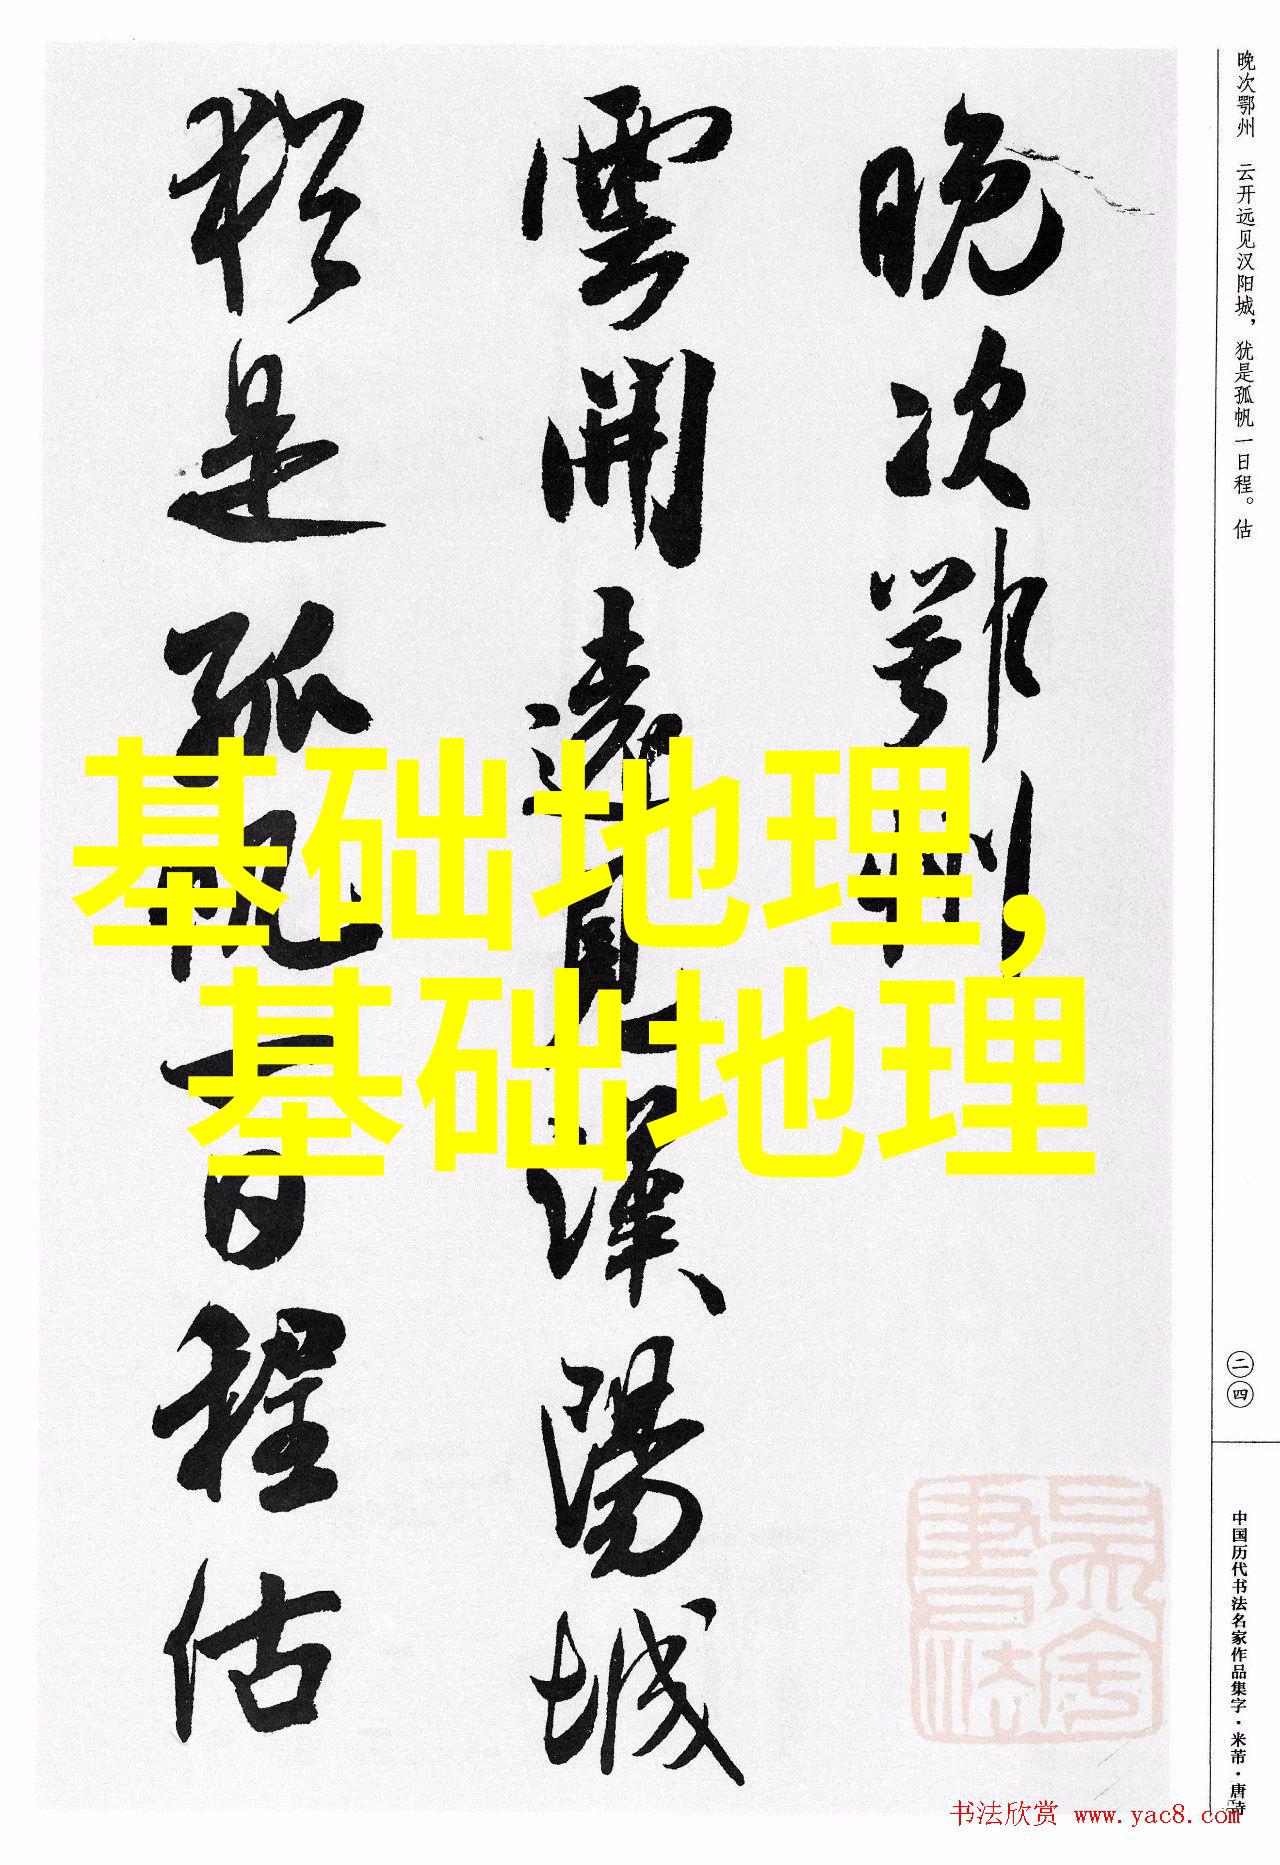 晚次鄂州
雲開遠見漢陽城
猶是孤帆一日程估
基础地理,
基础地理
晚次鄂州 云开远见汉阳城，犹是孤帆一日程。估
二四
中国历代书法名家作品集字·米芾·唐诗
书法欣赏 www.yac8.com